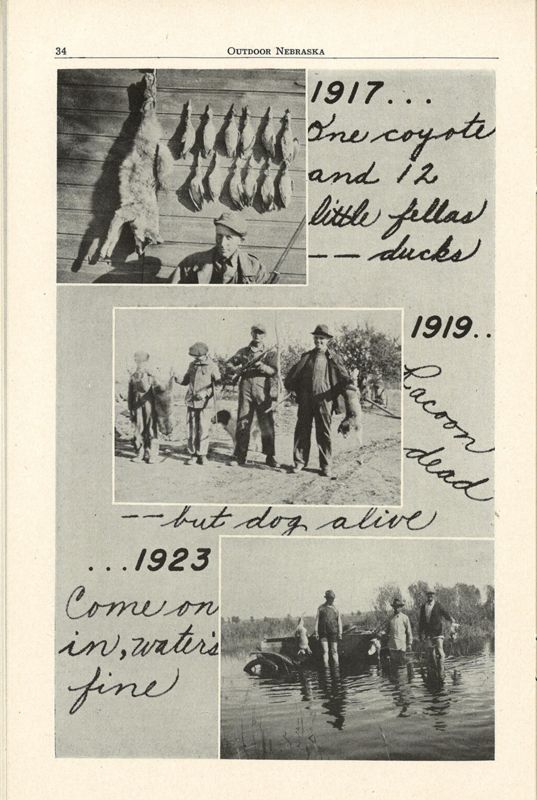 34
OUTDOOR NEBRASKA
1917...
One coyote
and 12
little fellas
-- ducks
1919..
Racoon
dead
--but dog alive
...1923
Come on
in, water's
fine